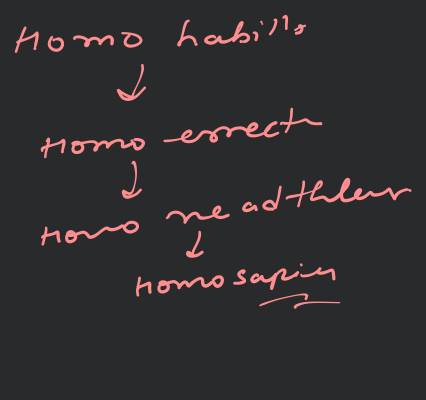 Homo habills
Homo errect
Homo neadthler
Homo sapien